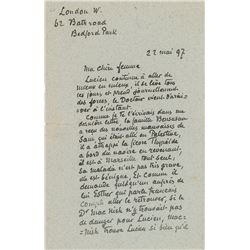 London W.
62 Bath road
Bedford Park
22 mai 97
Ma chère femme
Lucien continue à aller de
mieux en mieux, il se lève tous
les jours et prend journellement
des forces, le Docteur vient
à l'instant.
Comme je te l'écrivais dans ma
dernière lettre, la famille Bensusan
a reçu des nouvelles mauvaises de
Sam, qui était allé en Palestine,
on a attrapé la fièvre Typhoïde
à bord du navire en revenant,
il est à Marseille tout seul,
sa maladie n'est pas très grave,
elle est bénigne. Et comme il
demande quelqu'un auprès de
lui Esther qui parle français
compte aller le retrouver, si le
Dr. ne trouve pas de
danger pour Lucien,
trouve Lucien si bien qu'il